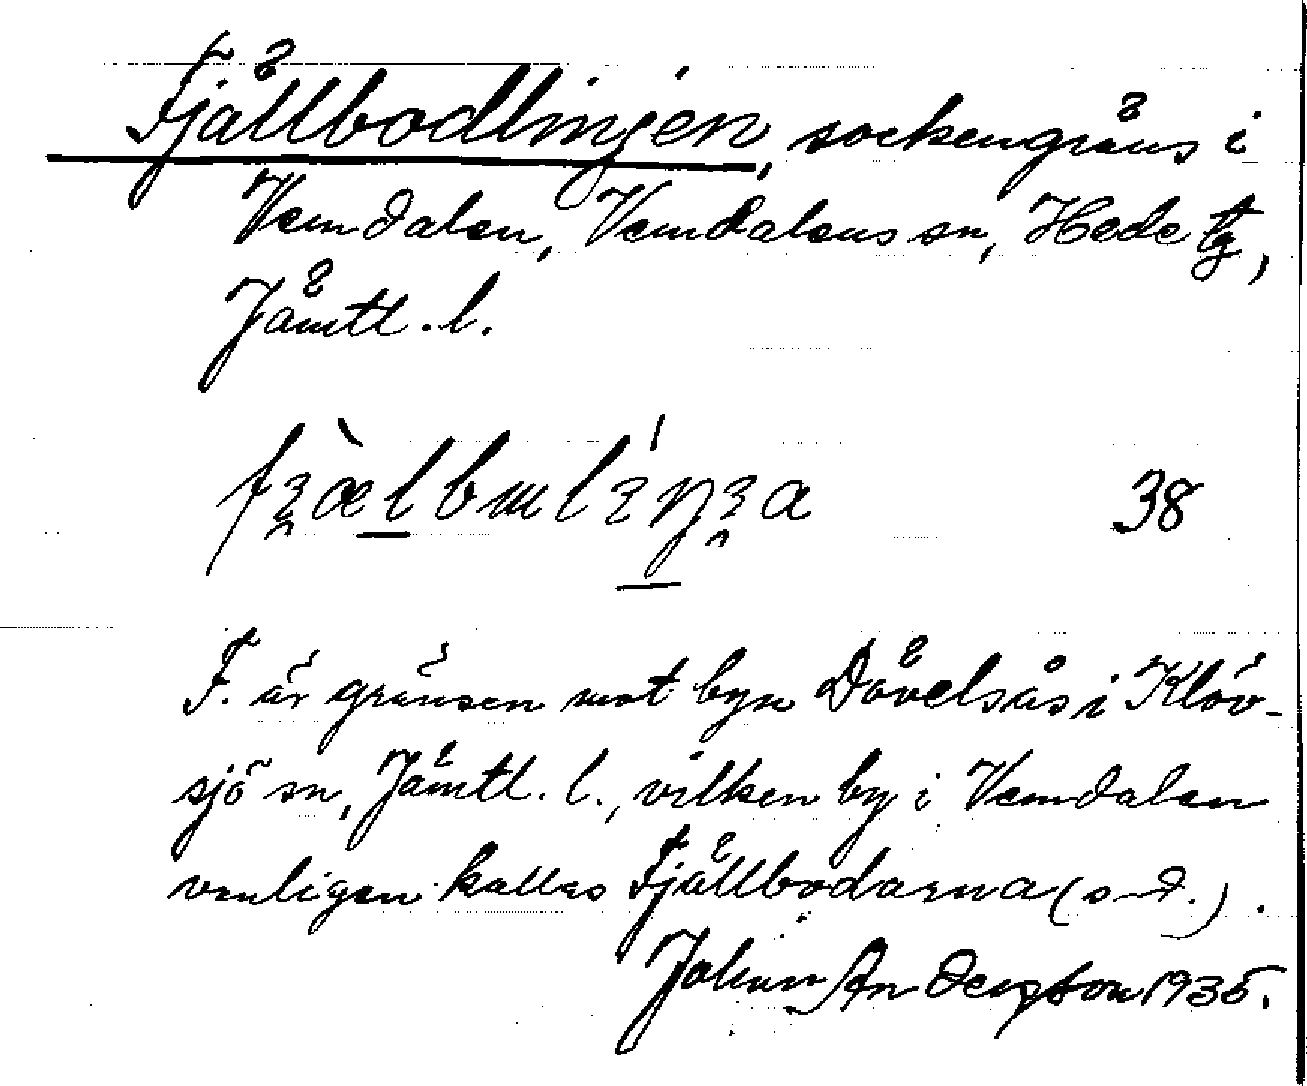 Fjällbodlinjen, sockengräns i
Vemdalen, Vemdalens sn, Hede tg,
Jämtl. l.
38
F. är gränsen mot byn Dåvelsås i Klöv-
sjö sn, Jämtl. l., vilken by i Vemdalen
vanligen kallas Fjällbodarna (s. d.).
Johan Andersson 1935.